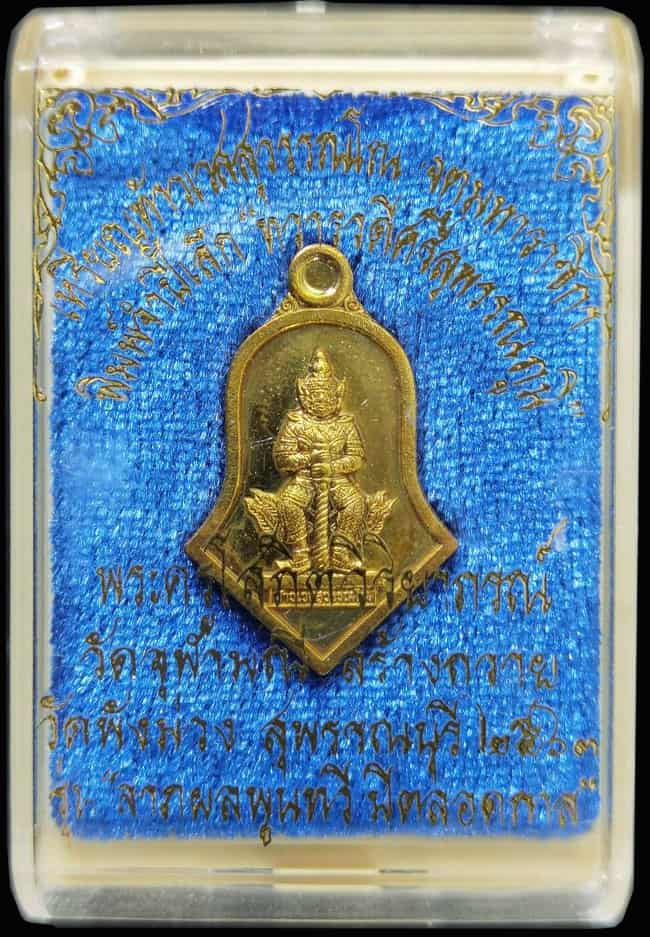 เหรียญท้าวเวสสุวรรณโณ จตุมหาราชิกา
พิมพ์จำปีเล็ก "ทวารวดีศรีสุพรรณภูมิ"
ท้าวเวสสุวรรณโณ
พระครูโสภิตวิริยาภรณ์
วัดจุฬามณี สร้างถวาย
วัดพังม่วง สุพรรณบุรี ๒๕๖๓
รุ่น "ลาภผลพูนทวี มีตลอดกาล"